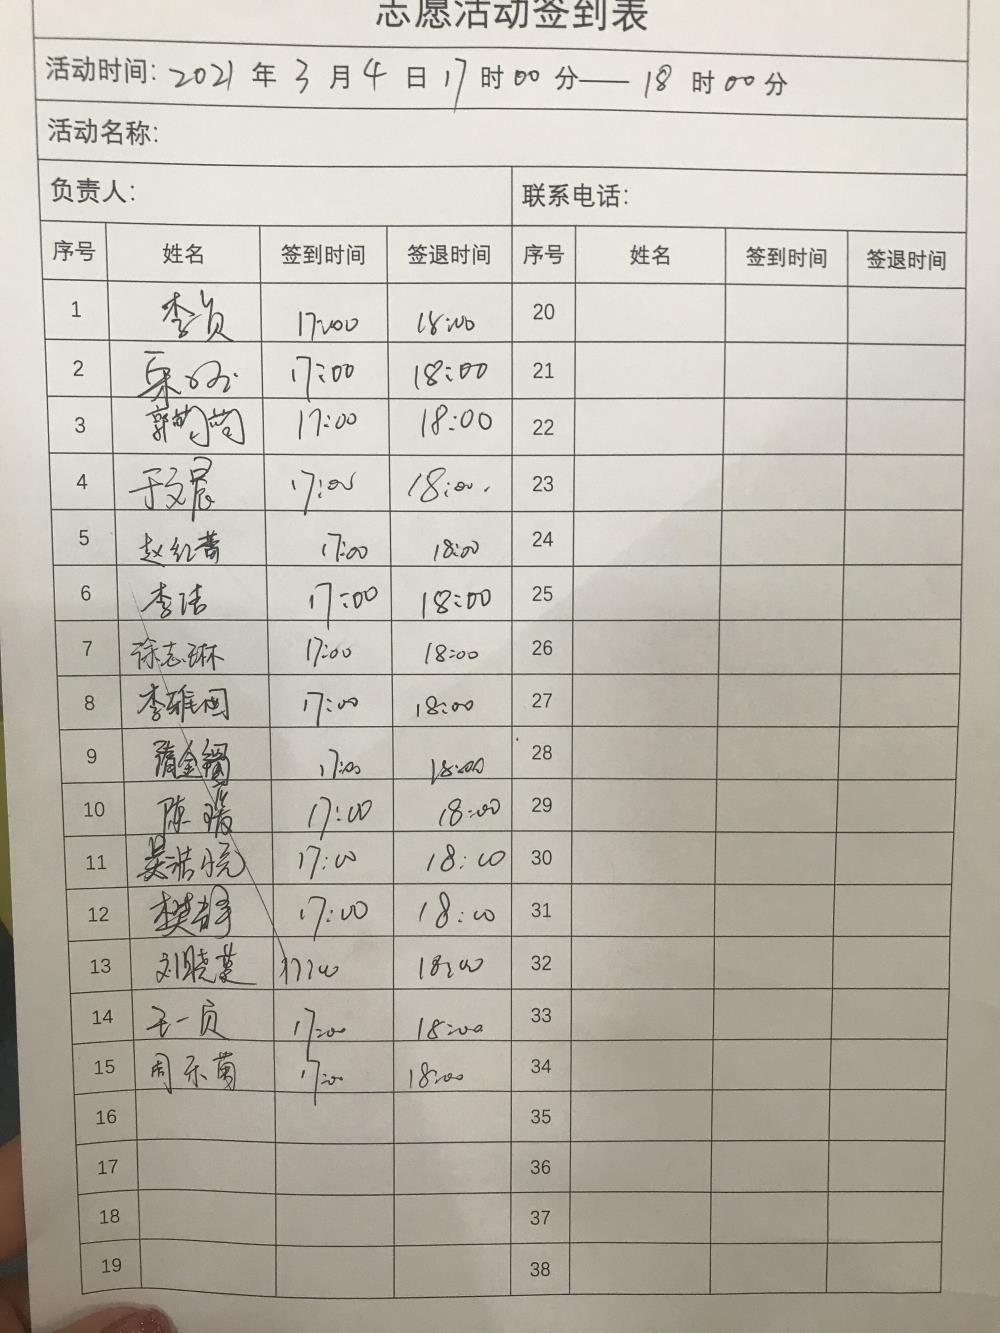 志愿活动签到表
活动时间: 2021 年 3 月 4 日 17 时 00 分 — 18 时 00 分
活动名称:
负责人: 联系电话:
序号 姓名 签到时间 签退时间 序号 姓名 签到时间 签退时间
1 李贞 17:00 18:00 20
2 17:00 18:00 21
3 郭 17:00 18:00 22
4 于文晨 17:00 18:00. 23
5 赵红蕾 17:00 18:00 24
6 李洁 17:00 18:00 25
7 徐志琳 17:00 18:00 26
8 李雅 17:00 18:00 27
9 17:00 18:00 28
10 陈瑗 17:00 18:00 29
11 吴浩 17:00 18:00 30
12 樊 17:00 18:00 31
13 刘晓 17:00 18:00 32
14 王一贞 17:00 18:00 33
15 周乐 17:00 18:00 34
16 35
17 36
18 37
19 38